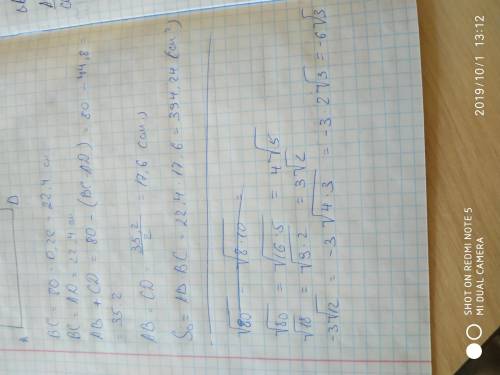 A D
BC = 80 · 0,28 = 22.4 см
BC = AD = 22.4 см
AB + CD = 80 - (BC AD) = 80 - 44,8 =
= 35.2
AB = CD = 35,2/2 = 17,6 (см)
S = AB BC = 22.4 17.6 = 394,24 (см²)
√80 = √8·10
√80 = √16·5 = 4√5
√18 = √9·2 = 3√2
-3√12 = -3√4·3 = -3·2√3 = -6√3
2019/10/1 13:12
SHOT ON REDMI NOTE 5
MI DUAL CAMERA